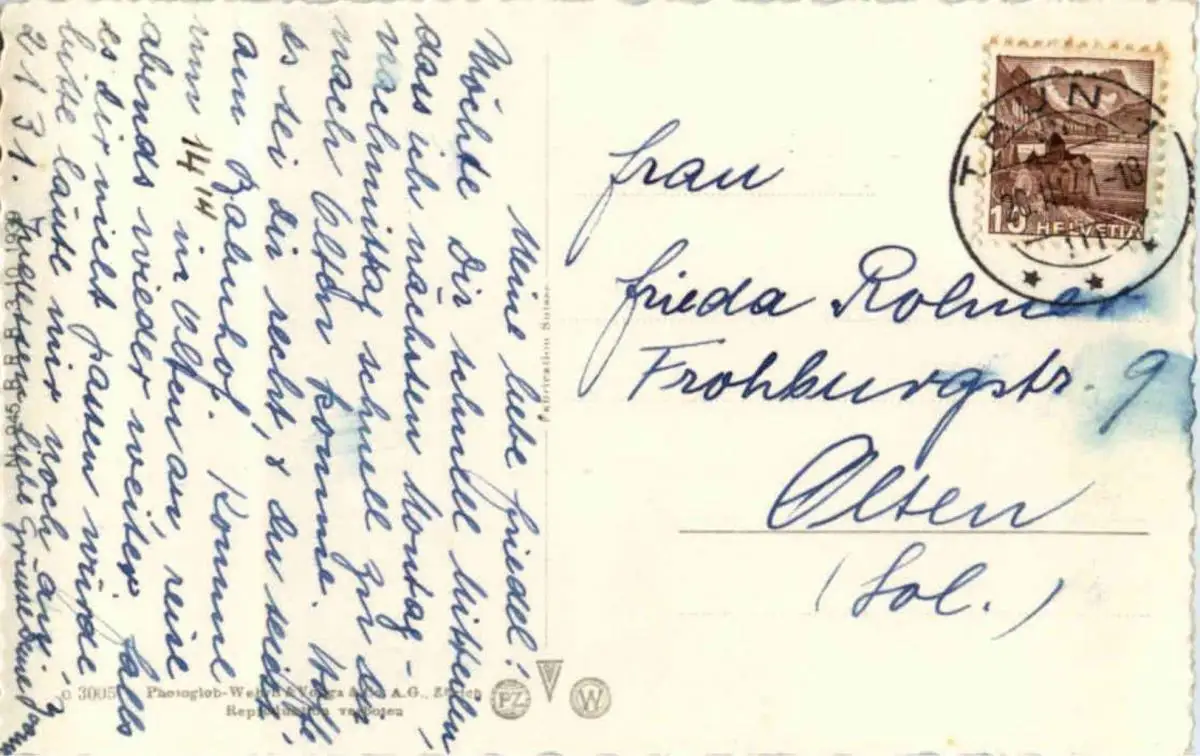 Meine liebe Friedel!
Möchte Dir schnell mitteilen,
dass ich nächsten Montag-
nachmittag schnell zu dir
nach Olten komme. Hoffe
es sei dir recht, & du seiest
am Bahnhof. Komme
um 14 14 in Olten an, reise
abends wieder weiter. Falls
es dir nicht passen würde
bitte läute mir noch an.
2 1 3 1. liebe Grüsse Deine
Nr. 945 B.R.B. 3.10.1939
Fabrication Suisse
o 3005 Photoglob-Wehrli & Vouga & Co. A.G., Zürich
Reproduktion verboten
PZ
W
THUN 1
10 HELVETIA
Frau
Frieda Rohner
Frohburgstr. 9
Olten
(Sol.)